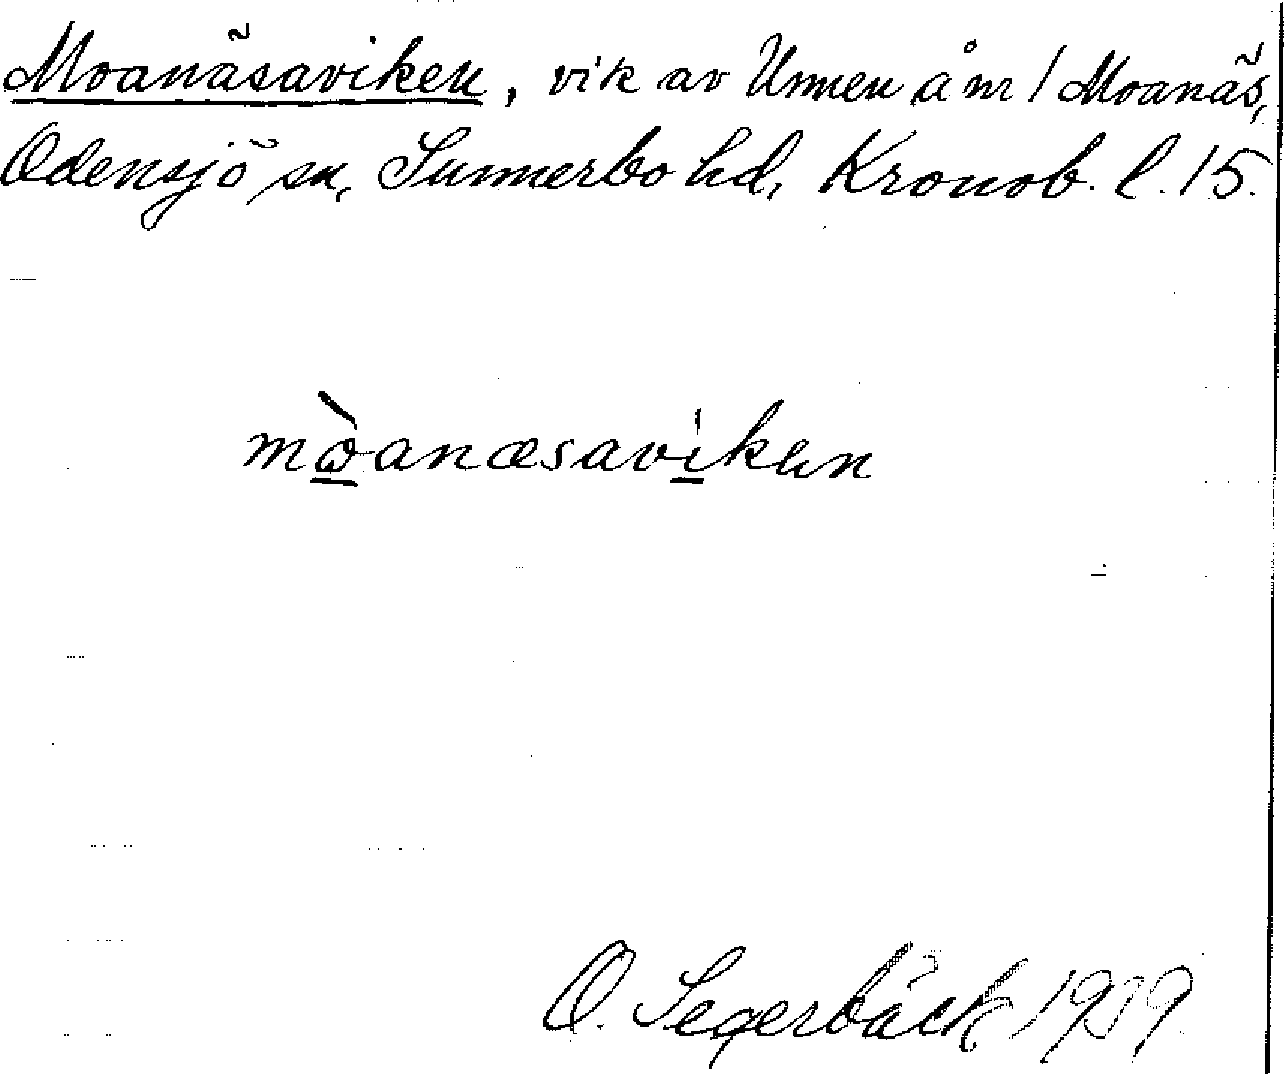 Moanäsaviken, vik av Unnen å nr 1 Moanäs,
Odensjö sn, Sunnerbo hd, Kronob. l. 15.
mòanæsavikən
O. Segerbäck 1939